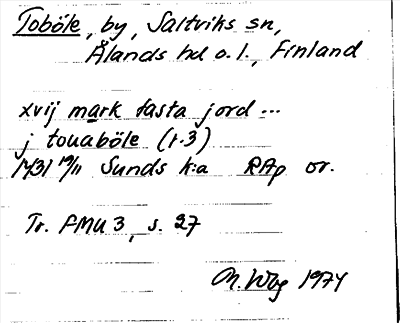 Toböle, by, Saltviks sn,
Ålands hd o. l., Finland
xvij mark fasta jord ...
j touaböle (r.3)
1431 19/11 Sunds k:a RAp or.
Tr. FMU 3, s. 27
1974